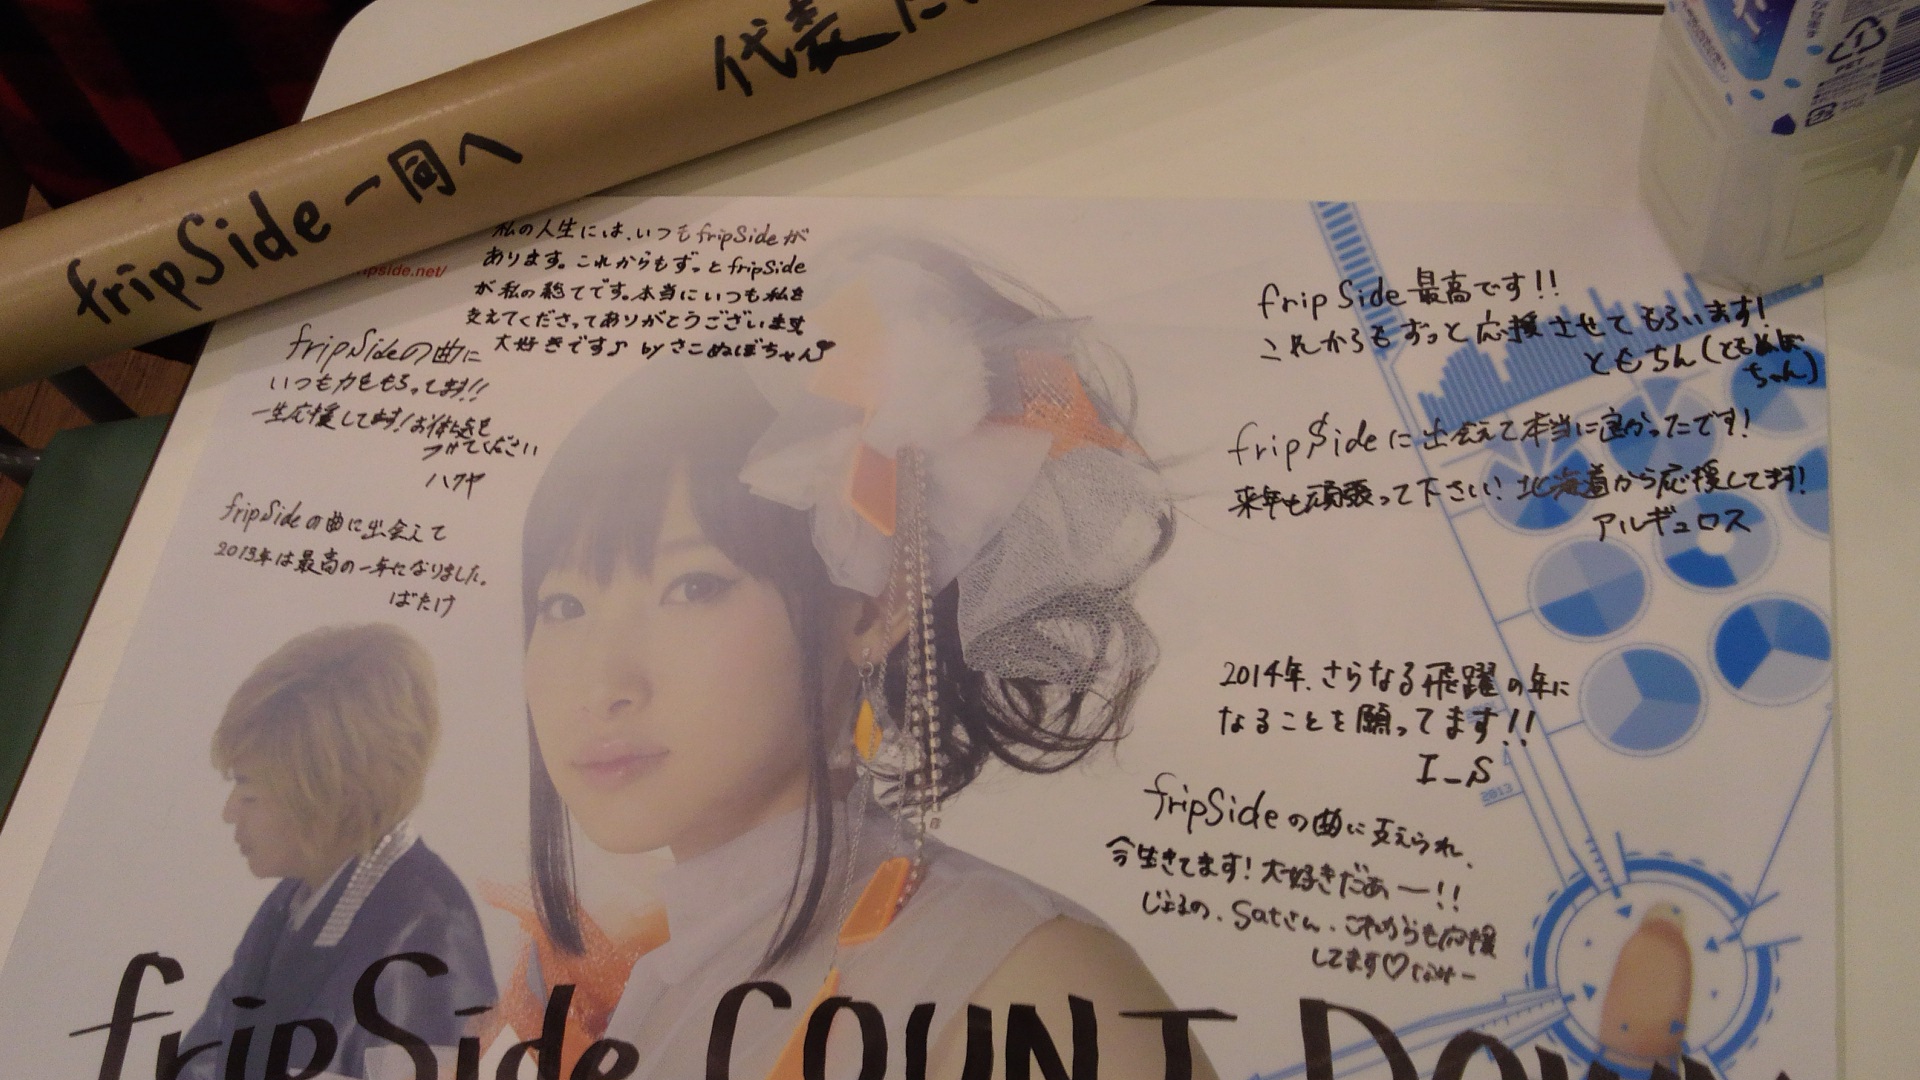 代表
fripSide一同へ
ipside.net/
私の人生には、いつもfripSideが
あります。これからもずっとfripSide
が私の総てです。本当にいつも私を
支えてくださってありがとうございます
大好きです♪ byさこぬぼちゃん
fripSideの曲に
いつも力をもらってます!!
一生応援してます!お体に気を
つけてください
ハクヤ
fripSideの曲に出会えて
2013年は最高の一年になりました。
ばたけ
fripSide最高です!!
これからもずっと応援させてもらいます!
ともちん(ともぬぼ
ちゃん)
fripSideに出会えて本当に良かったです!
来年も頑張って下さい!北海道から応援してます!
アルギュロス
2014年、さらなる飛躍の年に
なることを願ってます!!
I_S
2013
fripSideの曲に支えられ、
今生きてます!大好きだあー!!
satさん、これからも応援
してます♡
fripSide COUNT DOWN
PET